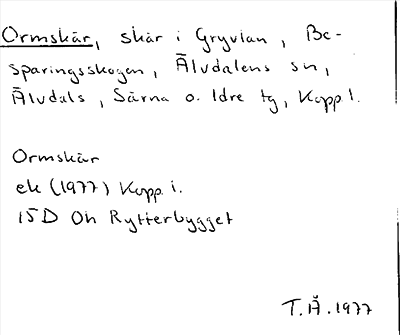 Ormskär, skär i Gryvlan, Be-
sparingsskogen, Älvdalens sn,
Älvdals, Särna o. Idre tg, Kopp l.
Ormskär
ek (1977) Kopp. l.
15D Oh Rytterbygget
T.Å. 1977